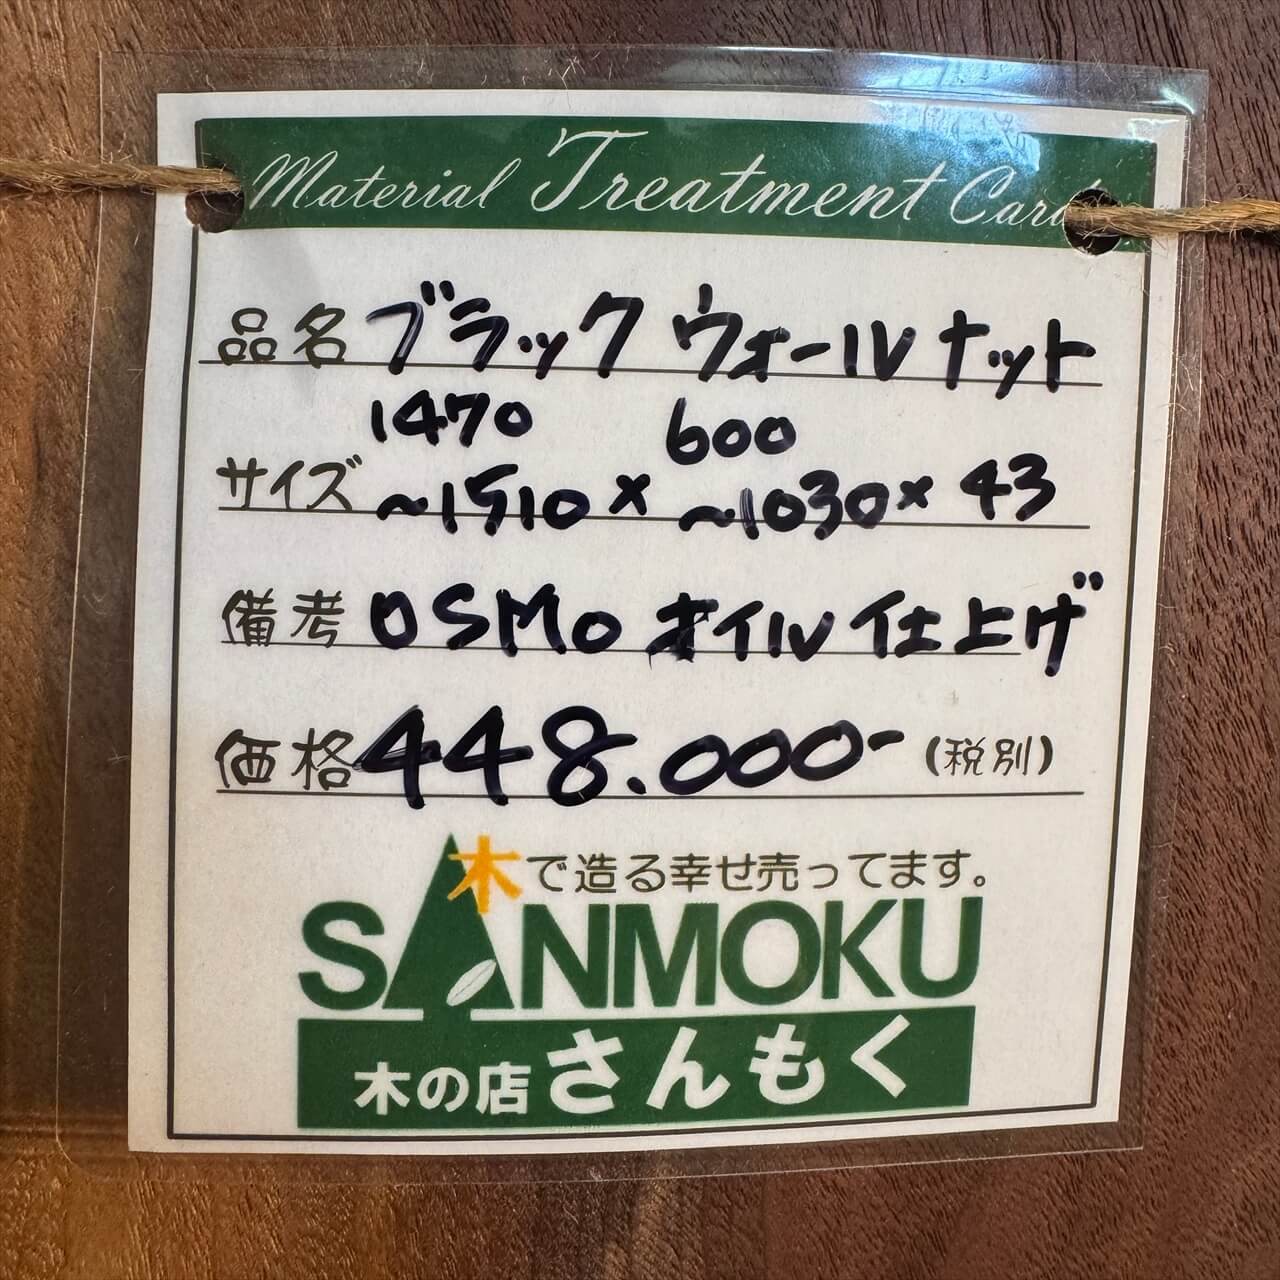 Material Treatment Card
品名 ブラックウォールナット
1470 600
サイズ ～1510 × ～1030 × 43
備考 OSMO オイル仕上げ
価格 448.000- (税別)
木で造る幸せ売ってます。
SANMOKU
木の店 さんもく